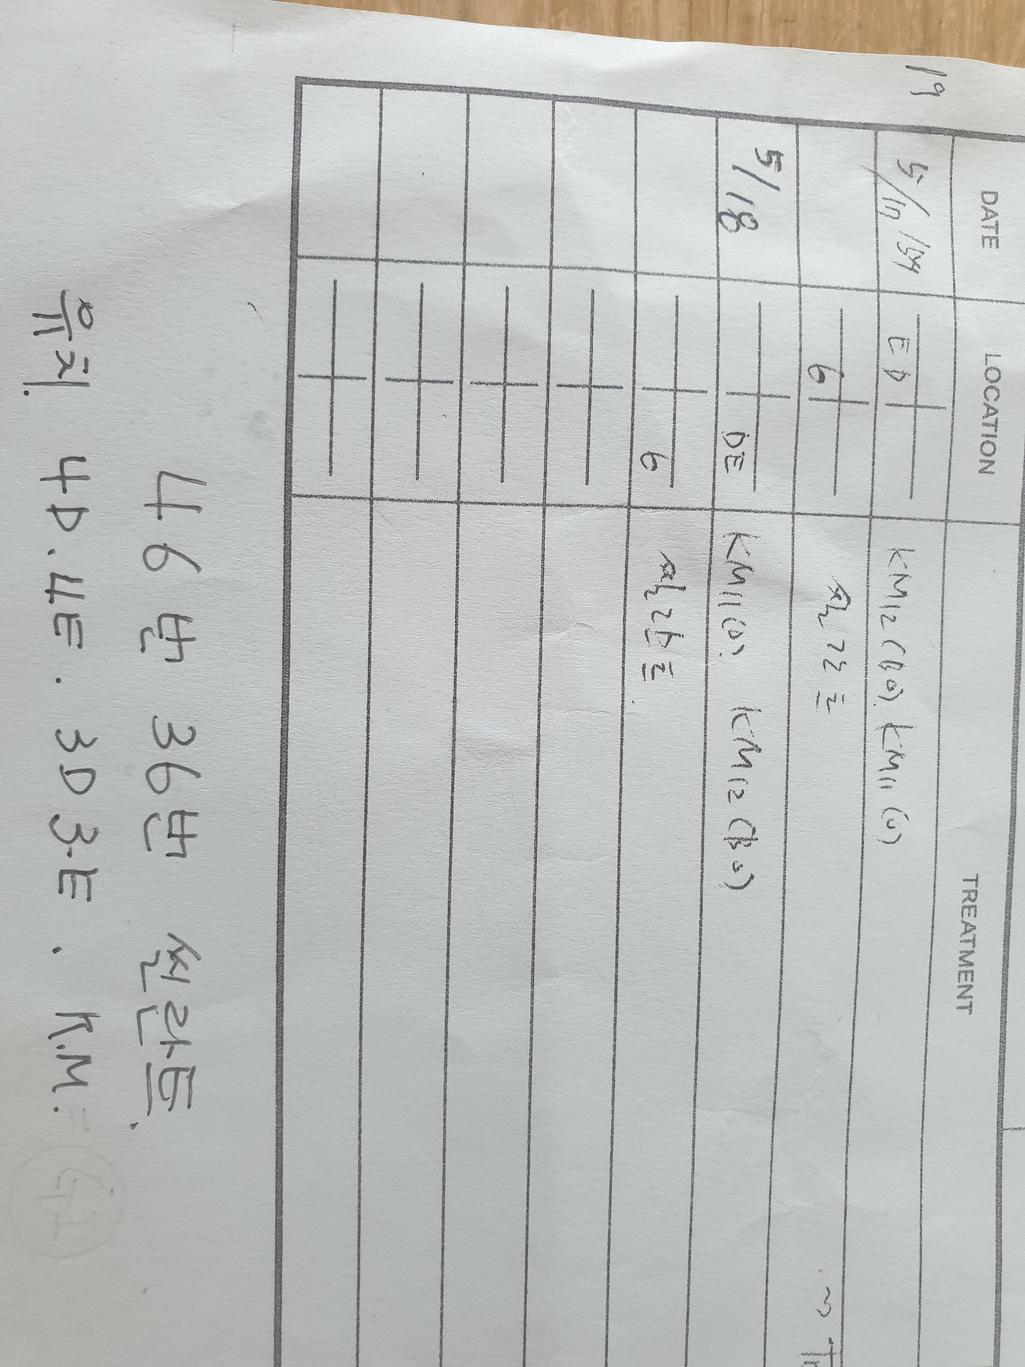 DATE LOCATION TREATMENT
19
5/17 ED KM12 (BO). KM11 (O)
6 씰란트
5/18 DE KM11 (O). KM12 (BO)
6 씰란트.
46번 36번 씰란트.
유치. 4D. 4E. 3D 3E. K.M. =